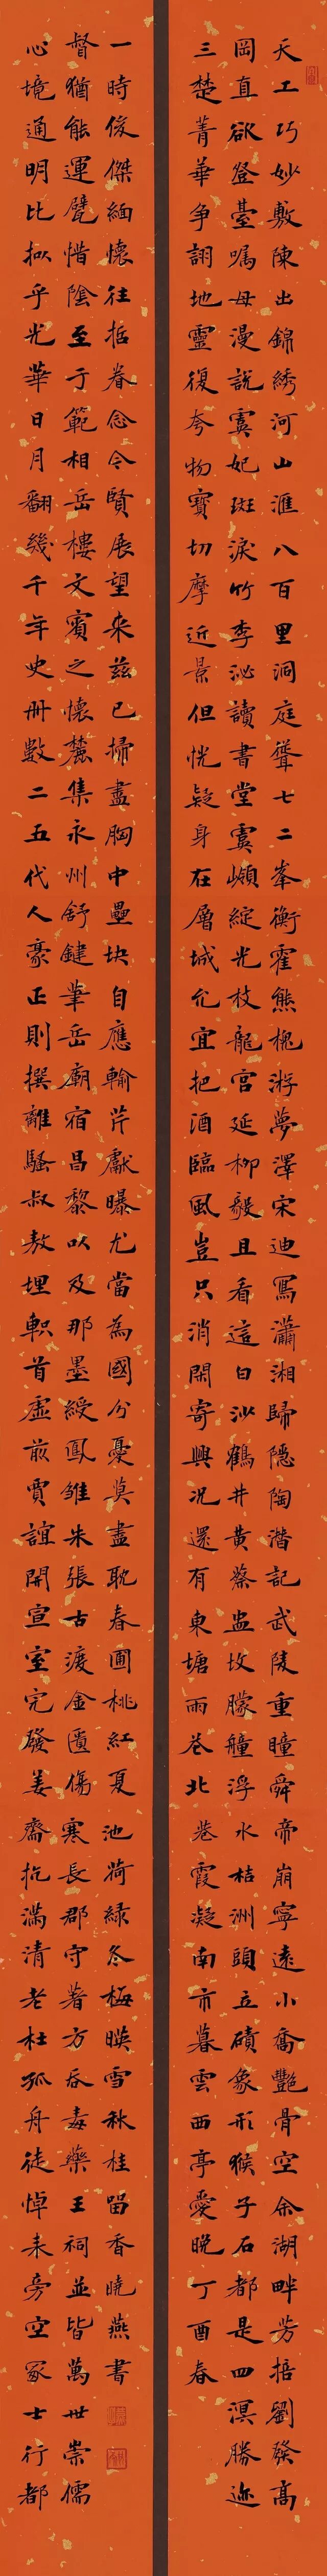 天工巧妙敷陳出錦綉河山滙八百里洞庭聳七二峯衡霍熊槐游夢澤宋迪寫瀟湘歸隱陶潛記武陵重瞳舜帝崩寧遠小喬艷骨空余湖畔芳掊劉發高
岡直欲登臺嘱母漫說虞妃斑淚竹李泌讀書堂虞巔綻光枝龍宮延柳毅且看這白沙鶴井黃蔡盅坟朦艟浮水桔洲頭立磧象形猴子石都是四溟勝迹
三楚菁華争詡地靈復夸物寶切摩近景但恍疑身在層城允宜把酒臨風豈只消閑寄興況還有東塘雨卷北巷霞凝南市暮雲西亭愛晚丁酉春
心境通明比擬乎光華日月翻幾千年史冊數二五代人豪正則撰離騷叔敖埋軹首虛前賈誼開宣室完發姜齋抗滿清老杜孤舟徒悼耒旁空冢士行都
督猶能運甓惜陰至于範相岳樓文賓之懷麓集永州舒鍵筆岳廟宿昌黎以及那墨綬鳳雛朱張古渡金匱傷寒長郡守著方吞毒藥王祠並皆萬世崇儒
一時俊傑緬懷往哲眷念今賢展望来兹已掃盡胸中壘塊自應輸芹獻曝尤當為國分憂莫盡耽春圃桃紅夏池荷綠冬梅暎雪秋桂留香曉燕書